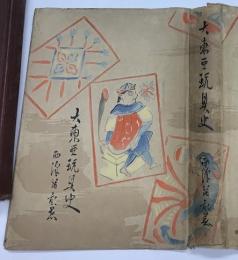 大東亜玩具史
西沢笛畝著
大東亜玩具史
西澤笛畝著